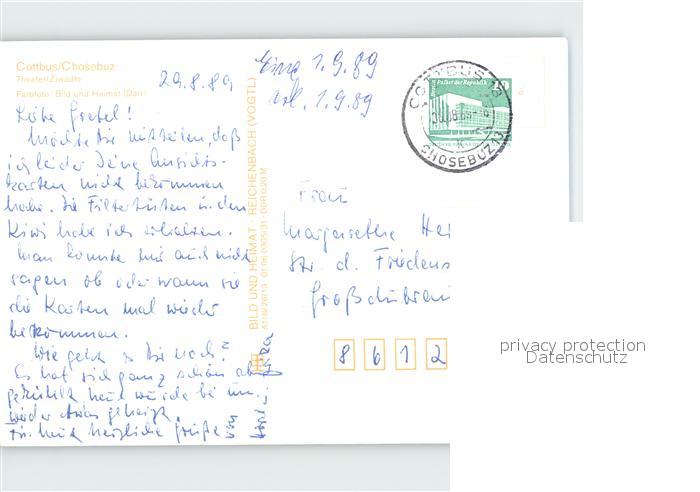 Cottbus/Chosebuz
Theater/Źiwadło
Farbfoto: Bild und Heimat (Darr
29.8.89
Eing. 1.9.89
1.9.89
Liebe Gretel!
Möchte Dir mitteilen, daß
ich leider Deine Ansichts-
karten nicht bekommen
habe. Die Filtertüten u. den
Kiwi habe ich erhalten.
Man konnte mir auch nicht
sagen ob oder wann sie
die Karten mal wieder
bekommen.
Wie geht es Dir noch?
Es hat sich ganz schön ab-
gekühlt heut wurde bei uns
wieder etwas geheizt.
Für heut herzliche Grüße
von
BILD UND HEIMAT · REICHENBACH (VOGTL)
A1/B/26/13 01 06 0305/31 DDR 0,20 M
Palast der Republik
COTTBUS 13
CHOSEBUZ 13
Frau
Margarethe Hei
Str. d. Friedens
Großdubrau
8612
privacy protection
Datenschutz